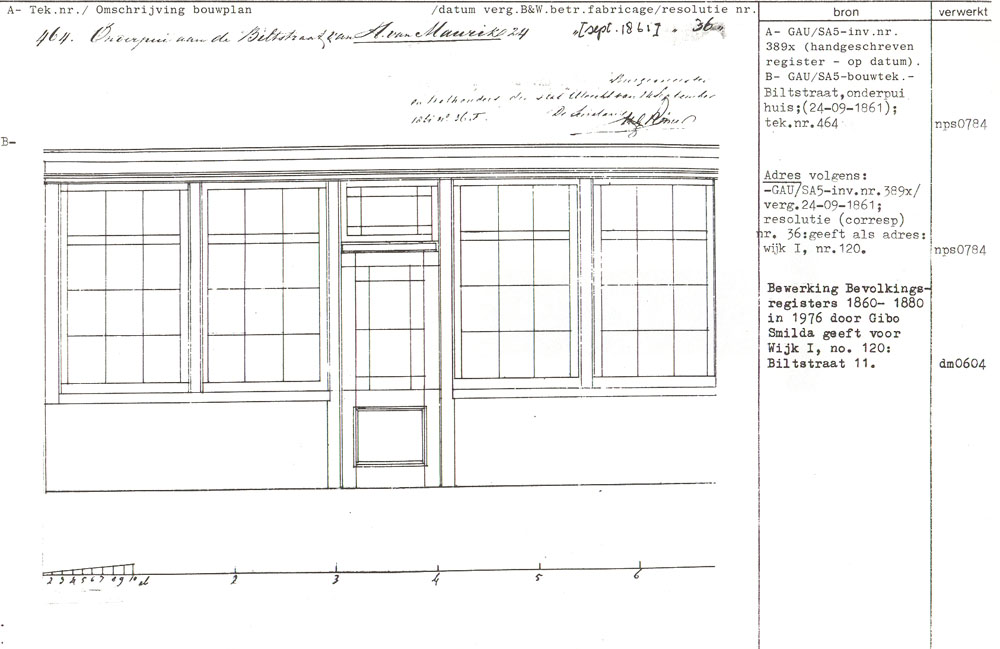 A- Tek.nr./ Omschrijving bouwplan /datum verg.B&W.betr.fabricage/resolutie nr.
bron
verwerkt
464. Onderpui aan de Biltstraat van H. van Maurik 24 „[sept. 1861] „ 36
Burgemeester
en Wethouders der stad Utrecht van 24 September
1861 nº 36.
De Secretaris
A- GAU/SA5-inv.nr.
389x (handgeschreven
register - op datum).
B- GAU/SA5-bouwtek.-
Biltstraat,onderpui
huis;(24-09-1861);
tek.nr.464
nps0784
B-
Adres volgens:
-GAU/SA5-inv.nr.389x/
verg.24-09-1861;
resolutie (corresp)
nr. 36:geeft als adres:
wijk I, nr.120.
nps0784
Bewerking Bevolkings-
registers 1860- 1880
in 1976 door Gibo
Smilda geeft voor
Wijk I, no. 120:
Biltstraat 11.
dm0604
2 3 4 5 6 7 8 9 10 el 2 3 4 5 6